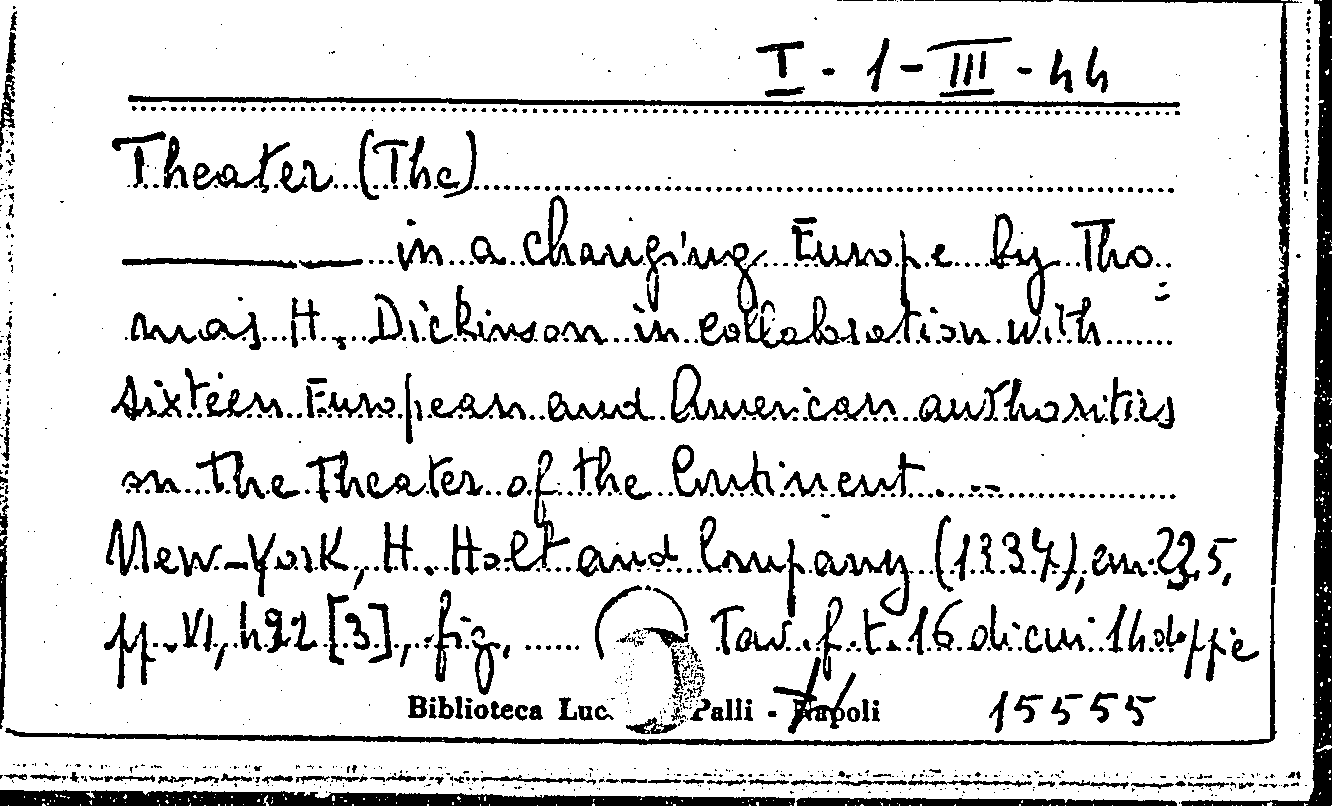 I - 1 - III - 44
Theater (The)
——— in a changing Europe by Tho=
mas H. Dickinson in collaboration with
sixteen European and American authorities
on the Theater of the Continent. --
New-York, H. Holt and Company (1937), cm. 22,5,
pp. VI, 492 [3], fig. Tav. f. t. 16 di cui 14 doppie
Biblioteca Luc Palli - Napoli 15555